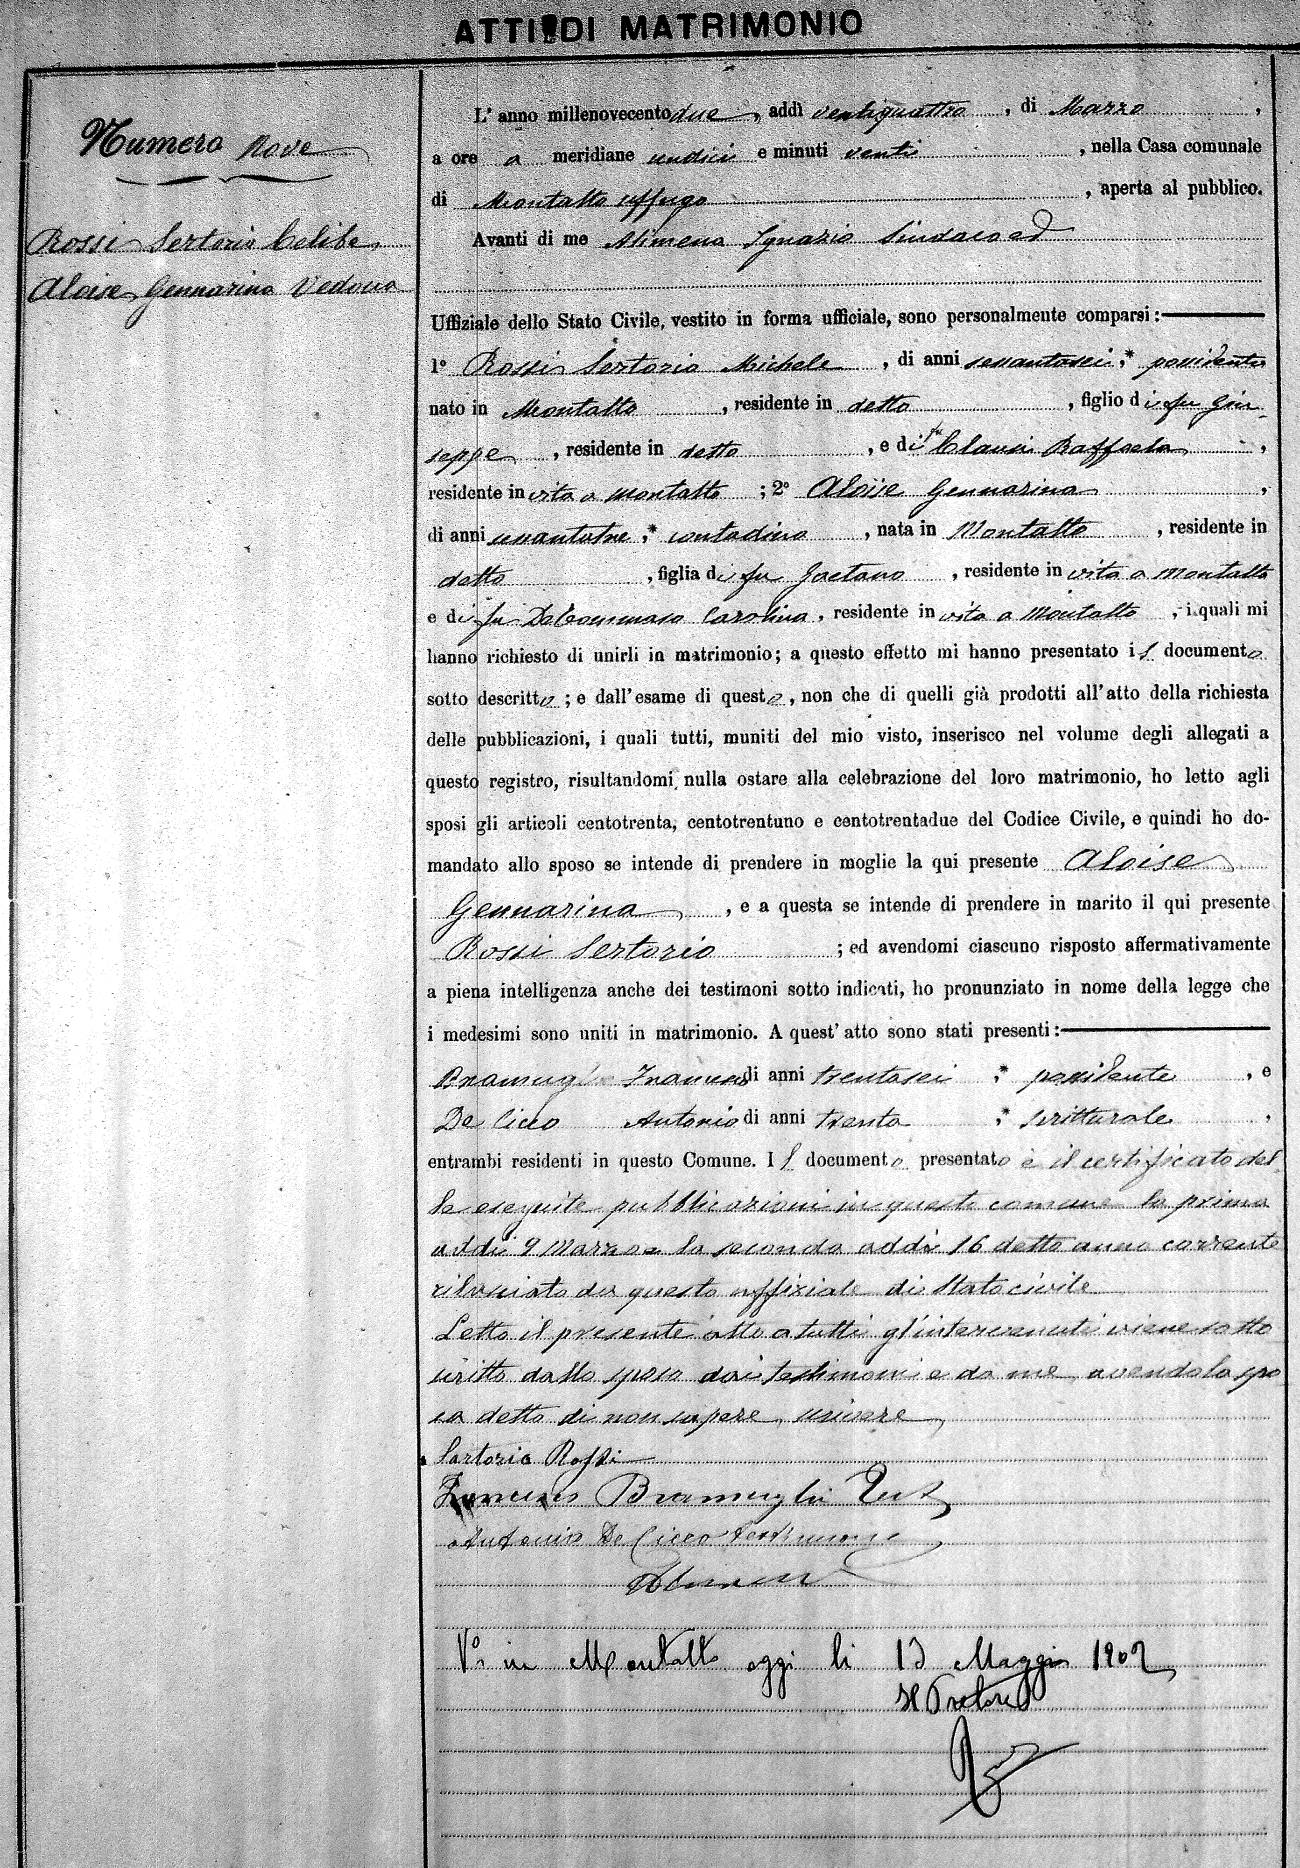 ATTI DI MATRIMONIO
Numero Nove
Rossi Sertorio Celibe
Aloise Gennarina Vedova
L'anno millenovecento due, addì ventiquattro, di Marzo,
a ore a meridiane undici e minuti venti, nella Casa comunale
di Montalto Uffugo, aperta al pubblico.
Avanti di me Alimena Ignazio Sindaco ed
Uffiziale dello Stato Civile, vestito in forma ufficiale, sono personalmente comparsi:
1º Rossi Sertorio Michele, di anni sessantasei,* possidente
nato in Montalto, residente in detto, figlio di fu Giu-
seppe, residente in detto, e di fu Clausi Raffaela,
residente in vita a Montalto; 2º Aloise Gennarina,
di anni sessantatre,* contadina, nata in Montalto, residente in
detto, figlia di fu Gaetano, residente in vita a Montalto
e di fu De Tommaso Carolina, residente in vita a Montalto, i quali mi
hanno richiesto di unirli in matrimonio; a questo effetto mi hanno presentato il documento
sotto descritto; e dall'esame di questo, non che di quelli già prodotti all'atto della richiesta
delle pubblicazioni, i quali tutti, muniti del mio visto, inserisco nel volume degli allegati a
questo registro, risultandomi nulla ostare alla celebrazione del loro matrimonio, ho letto agli
sposi gli articoli centotrenta, centotrentuno e centotrentadue del Codice Civile, e quindi ho do-
mandato allo sposo se intende di prendere in moglie la qui presente Aloise
Gennarina, e a questa se intende di prendere in marito il qui presente
Rossi Sertorio; ed avendomi ciascuno risposto affermativamente
a piena intelligenza anche dei testimoni sotto indicati, ho pronunziato in nome della legge che
i medesimi sono uniti in matrimonio. A quest'atto sono stati presenti:
Bramuglia Francesco di anni trentasei;* possidente, e
De Cicco Antonio di anni trenta;* scritturale,
entrambi residenti in questo Comune. Il documento presentato è il certificato del
le eseguite pubblicazioni in questo comune la prima
addì 9 Marzo e la seconda addì 16 detto anno corrente
rilasciato da questo uffiziale di Stato civile
Letto il presente atto a tutti gl'intervenuti viene sotto
scritto dallo sposo dai testimoni e da me, avendo la spo
sa detto di non sapere scrivere
Sertorio Rossi
Francesco Bramuglia Test
Antonio De Cicco testimone
Alimena
Vº in Montalto oggi li 13 Maggio 1902
Il Pretore